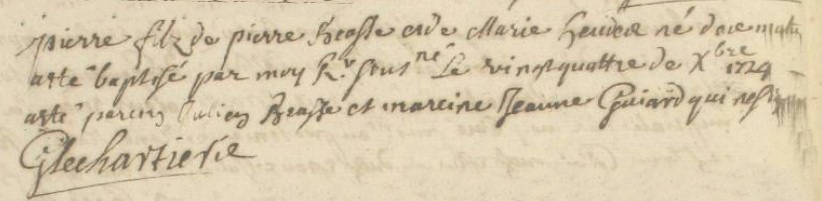 pierre filz de pierre Brasse et de Marie né de ce matin
a esté baptisé par moy Rr souss né Le vingt quattre de Xbre 1724
a esté parein Julien Brasse et mareine Jeanne Guiard qui ne si
G lechartierie